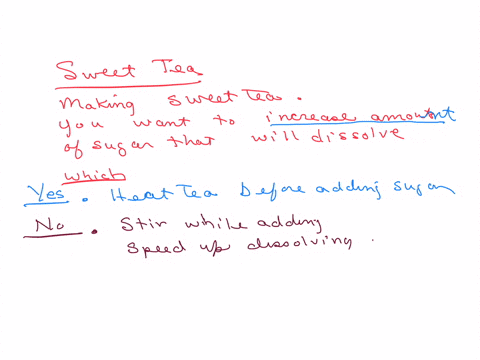 Sweet Tea
Making sweet Tea.
you want to increase amount
of sugar that will dissolve
which
Yes. Heat Tea before adding sugar
No. Stir while adding
speed up dissolving.